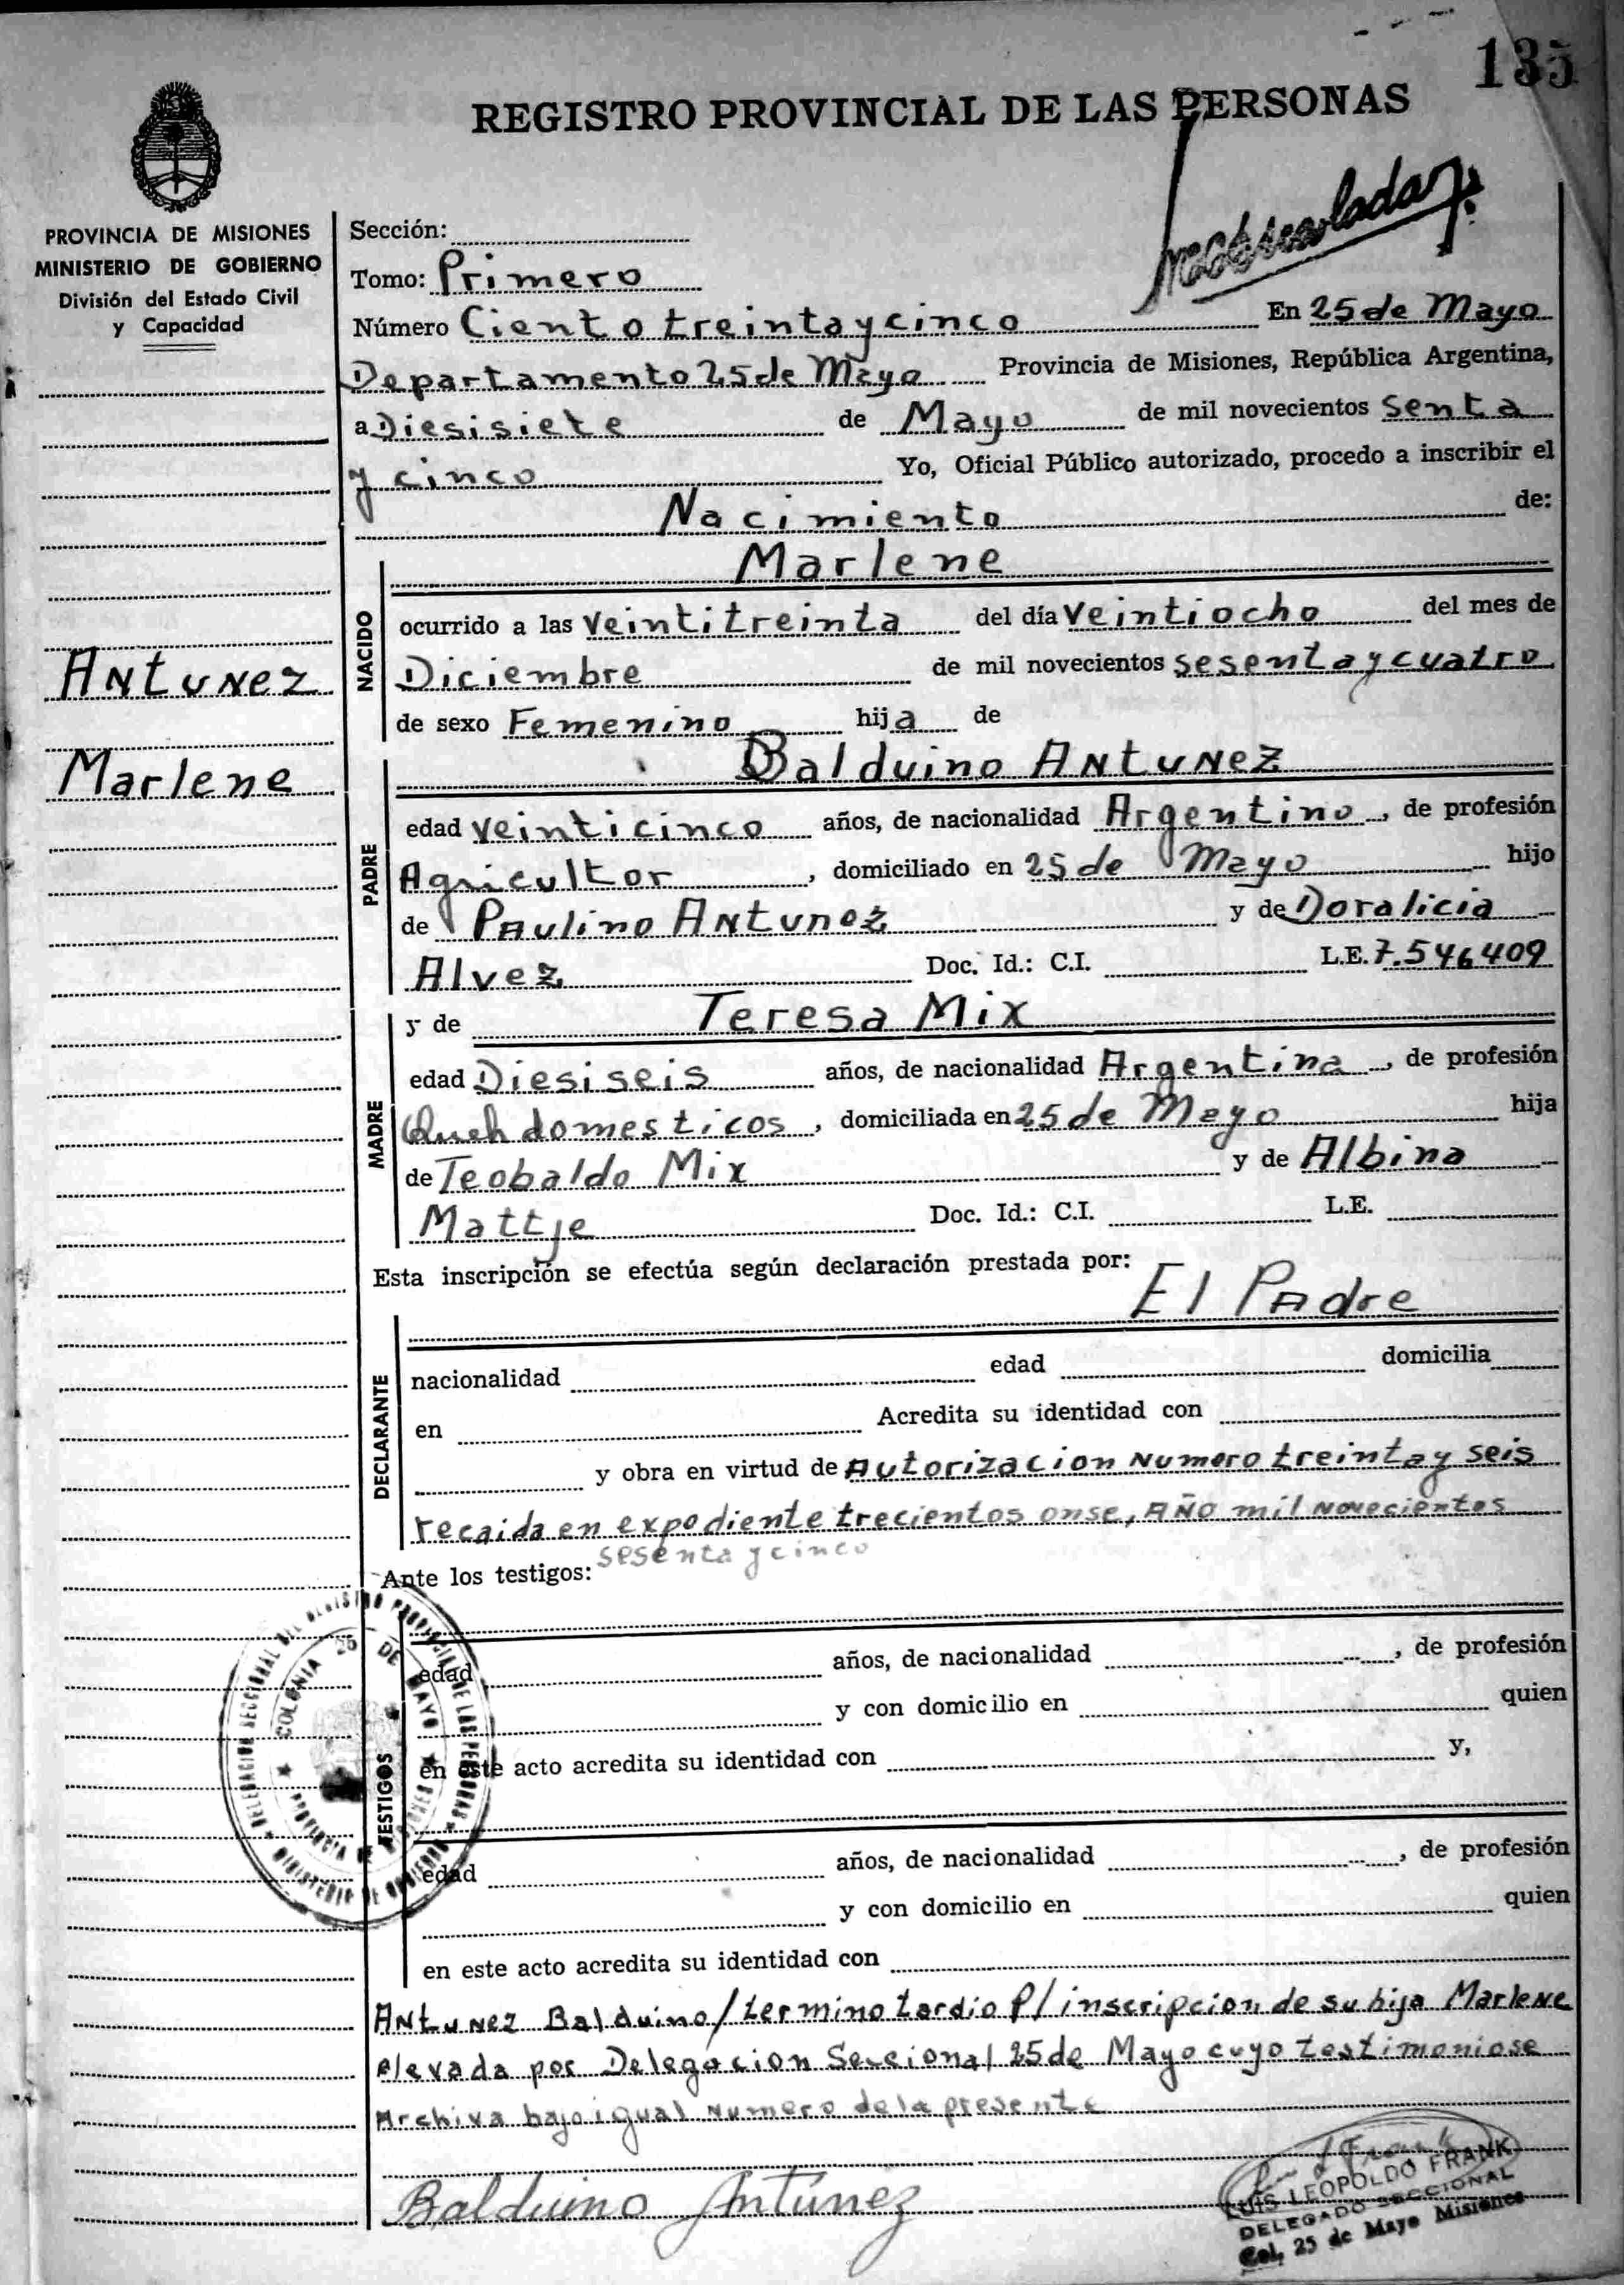 135
REGISTRO PROVINCIAL DE LAS PERSONAS
PROVINCIA DE MISIONES
MINISTERIO DE GOBIERNO
División del Estado Civil
y Capacidad
Antunez
Marlene
Sección:
Tomo: Primero
Número Ciento treinta y cinco En 25 de Mayo
Departamento 25 de Mayo Provincia de Misiones, República Argentina,
a Diesisiete de Mayo de mil novecientos senta
y cinco Yo, Oficial Público autorizado, procedo a inscribir el
Nacimiento de:
Marlene
NACIDO
ocurrido a las veintitreinta del día veintiocho del mes de
Diciembre de mil novecientos sesenta y cuatro
de sexo Femenino hija de
Balduino Antunez
PADRE
edad veinticinco años, de nacionalidad Argentino, de profesión
Agricultor, domiciliado en 25 de Mayo hijo
de Paulino Antunez y de Doralicia
Alvez Doc. Id.: C.I. L.E. 7.546409
y de Teresa Mix
MADRE
edad Diesiseis años, de nacionalidad Argentina, de profesión
domesticos, domiciliada en 25 de Mayo hija
de Teobaldo Mix y de Albina
Mattje Doc. Id.: C.I. L.E.
Esta inscripción se efectúa según declaración prestada por:
El Padre
DECLARANTE
nacionalidad edad domicilia
en Acredita su identidad con
y obra en virtud de Autorizacion Numero treinta y seis
recaida en expediente trecientos onse, Año mil novecientos
sesenta y cinco
Ante los testigos:
TESTIGOS
edad años, de nacionalidad , de profesión
y con domicilio en quien
en este acto acredita su identidad con y,
edad años, de nacionalidad , de profesión
y con domicilio en quien
en este acto acredita su identidad con
Antunez Balduino/termino tardio P/inscripcion de su hija Marlene
elevada por Delegacion Seccional 25 de Mayo cuyo testimonio se
Archiva bajo igual Numero de la presente
Balduino Antúnez
DELEGACION SECCIONAL DEL REGISTRO PROVINCIAL DE LAS PERSONAS
MINISTERIO DE GOBIERNO
COLONIA 25 DE MAYO
PROVINCIA DE MISIONES
LUIS LEOPOLDO FRANK
DELEGADO SECCIONAL
Col. 25 de Mayo Misiones